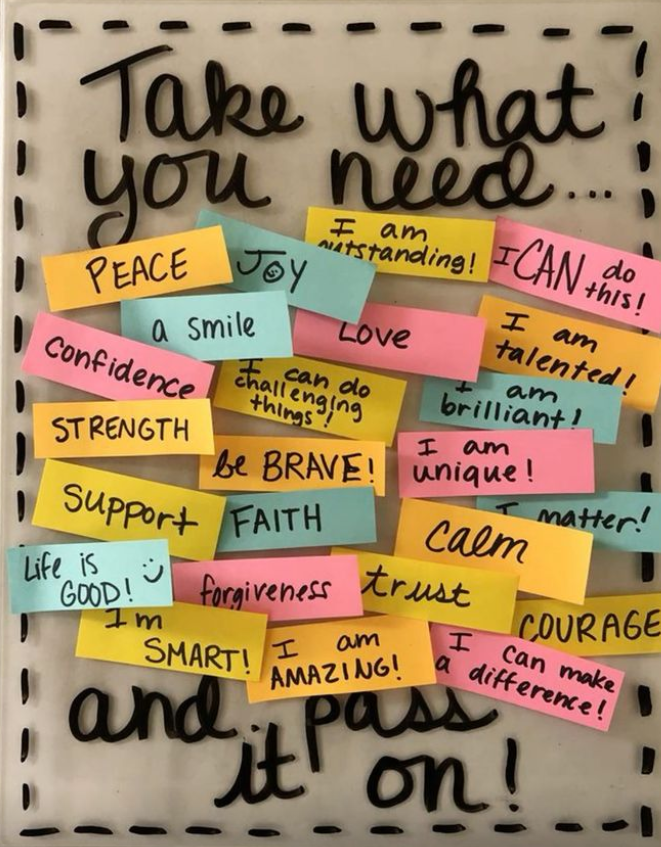 Take what
you need...
I am
outstanding!
PEACE
JOY
I CAN do
this!
a smile
Love
I am
talented!
confidence
I can do
challenging
things!
I am
brilliant!
STRENGTH
be BRAVE!
I am
unique!
Support
FAITH
calm
I matter!
Life is
GOOD!
forgiveness
trust
COURAGE
Im
SMART!
I am
AMAZING!
I can make
a difference!
and pass
it on!